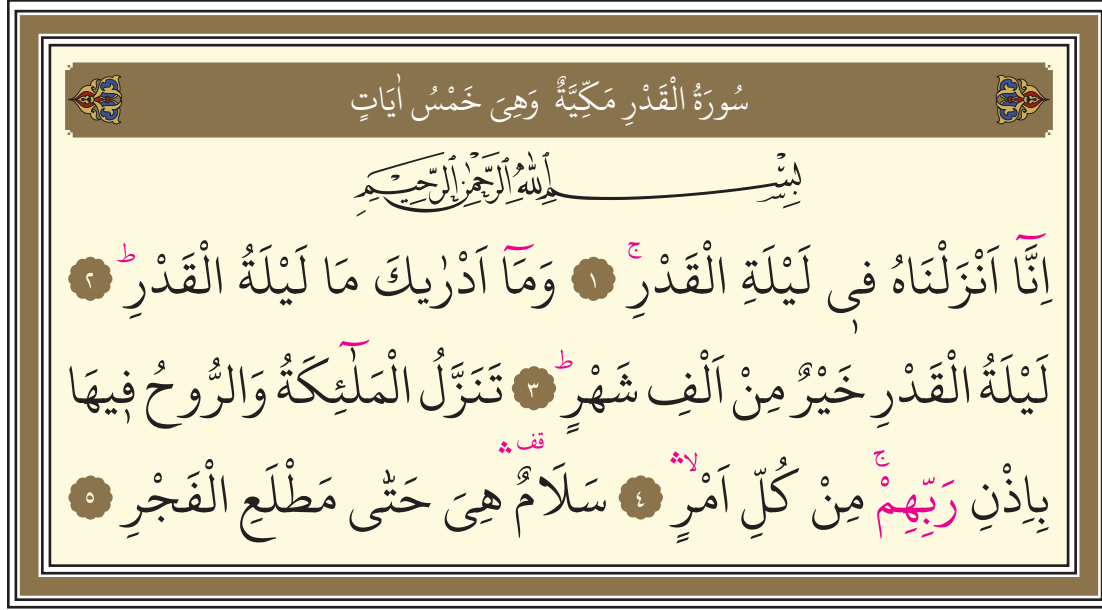 سُورَةُ الْقَدْرِ مَكِّيَّةٌ وَهِىَ خَمْسُ اٰيَاتٍ
بِسْمِ اللّٰهِ الرَّحْمٰنِ الرَّحِيمِ
اِنَّٓا اَنْزَلْنَاهُ فٖى لَيْلَةِ الْقَدْرِۚ ١ وَمَٓا اَدْرٰيكَ مَا لَيْلَةُ الْقَدْرِؕ ٢
لَيْلَةُ الْقَدْرِ خَيْرٌ مِنْ اَلْفِ شَهْرٍؕ ٣ تَنَزَّلُ الْمَلٰٓئِكَةُ وَالرُّوحُ فٖيهَا
بِاِذْنِ رَبِّهِمْۚ مِنْ كُلِّ اَمْرٍۙۛ ٤ سَلَامٌ قف ۛ هِىَ حَتّٰى مَطْلَعِ الْفَجْرِ ٥